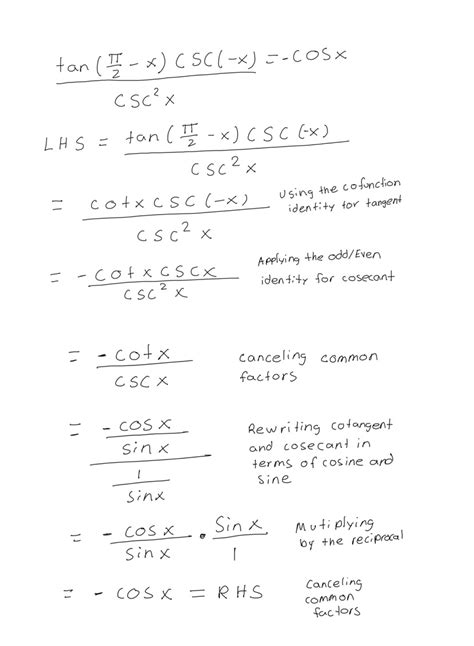 tan (π/2 - x) CSC(-x) = -COSx
CSC² x
LHS = tan (π/2 - x) CSC (-x)
CSC² x
= cotx CSC (-x) Using the cofunction
identity for tangent
CSC² x
= - cotx CSCX Applying the odd/Even
identity for cosecant
CSC² X
= - cotx canceling common
factors
CSC X
= - COSX Rewriting cotangent
sinx and cosecant in
terms of cosine and
1 sine
Sinx
= - COSX . Sinx Mutiplying
by the reciprocal
Sinx 1
= - COSX = RHS Canceling
common
factors